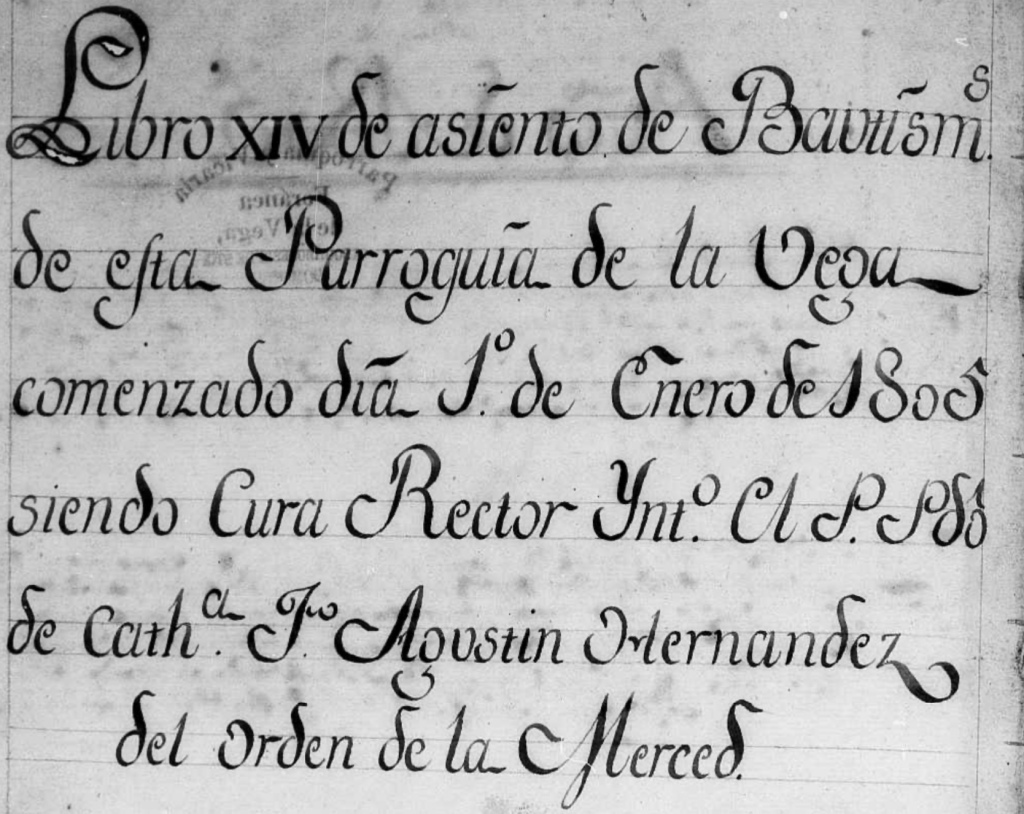 Libro XIV de asiento de Bautism.s
de esta Parroquia de la Vega
comenzado dia 1.º de Enero de 1805
siendo Cura Rector Ynt.º El P. Pdo
de Cath.a Fr. Agustin Hernandez
del Orden de la Merced.